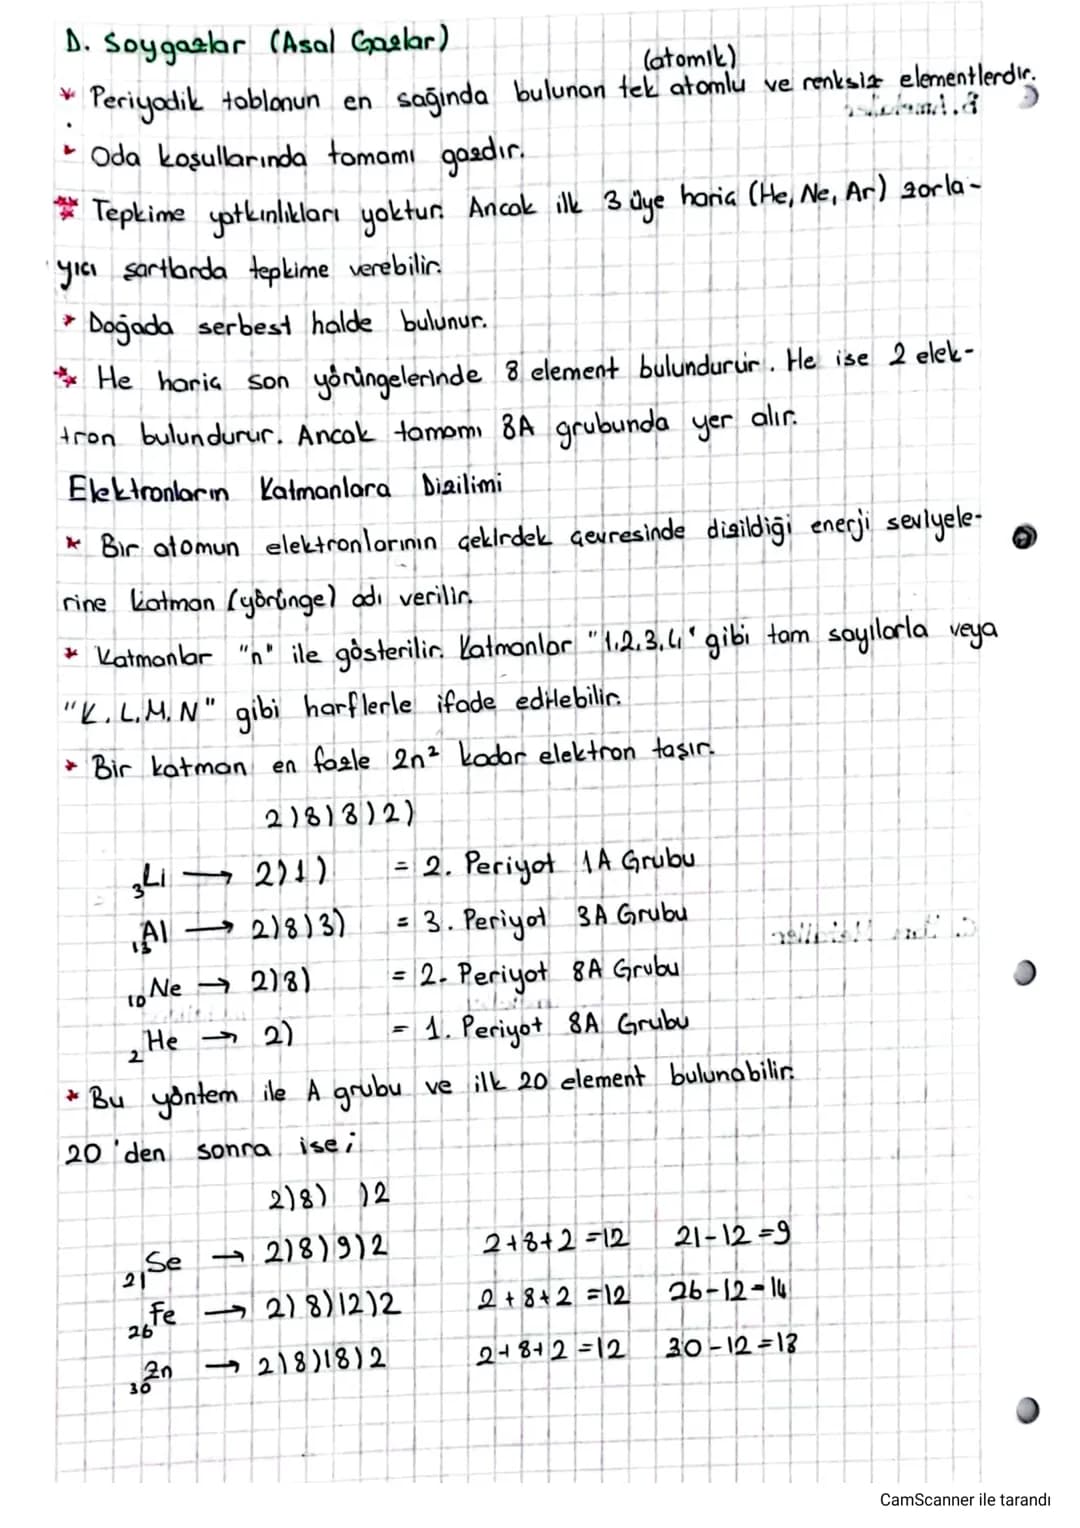 D. Soygazlar (Asal Gazlar)
(atomik)
* Periyodik tablonun en sağında bulunan tek atomlu ve renksiz elementlerdir.
* Oda koşullarında tamamı gazdır.
** Tepkime yatkınlıkları yoktur. Ancak ilk 3 üye hariç (He, Ne, Ar) zorla-
yıcı şartlarda tepkime verebilir.
* Doğada serbest halde bulunur.
** He hariç son yörüngelerinde 8 element bulundurur. He ise 2 elek-
tron bulundurur. Ancak tamamı 8A grubunda yer alır.
Elektronların Katmanlara Dizilimi
* Bir atomun elektronlarının çekirdek çevresinde dizildiği enerji seviyele-
rine katman (yörünge) adı verilir.
* Katmanlar "n" ile gösterilir. Katmanlar "1,2,3,4" gibi tam sayılarla veya
"K, L, M, N" gibi harflerle ifade edilebilir.
* Bir katman en fazle 2n² kadar elektron taşır.
2)8)8)2)
₃Li → 2)1) = 2. Periyot 1A Grubu
₁₃Al → 2)8)3) = 3. Periyot 3A Grubu
₁₀Ne → 2)8) = 2. Periyot 8A Grubu
₂He → 2) = 1. Periyot 8A Grubu
* Bu yöntem ile A grubu ve ilk 20 element bulunabilir.
20'den sonra ise;
2)8) )2
₂₁Se → 2)8)9)2 2+8+2=12 21-12=9
₂₆Fe → 2)8)12)2 2+8+2=12 26-12=14
₃₀Zn → 2)8)18)2 2+8+2=12 30-12=18
CamScanner ile tarandı